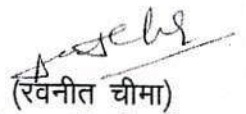 (रवनीत चीमा)